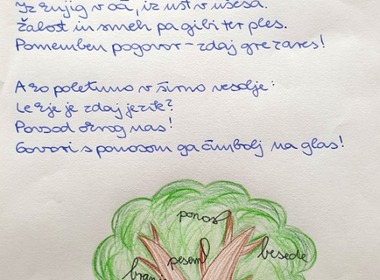 Iz knjig v oči, iz ust v ušesa.
Žalost in smeh pa gibi ter ples.
Pomemben pogovor - zdaj gre zares!
A ko poletimo v širno vesolje:
Le kje je zdaj jezik?
Povsod okrog nas!
Govori s ponosom ga čimbolj na glas!
ponos
pesem
besede
branje